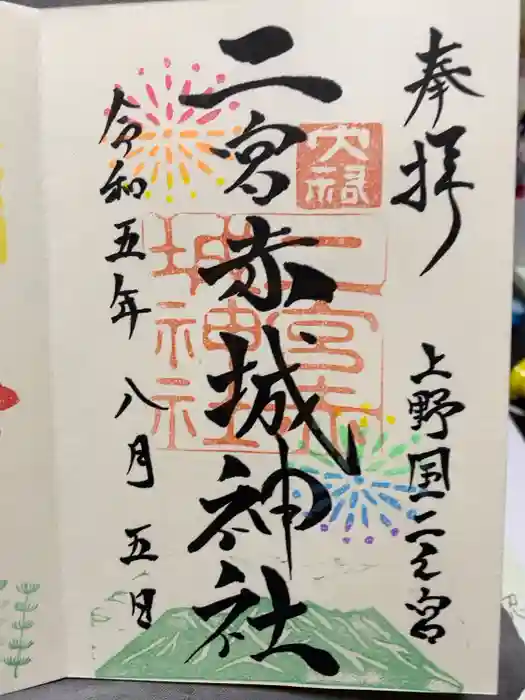 奉拝
上野国二之宮
二宮赤城神社
令和五年八月五日
大福
二宮赤
城神社